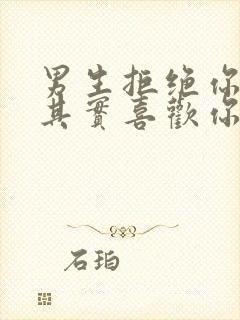 男生拒绝你
其實喜歡你
石珀